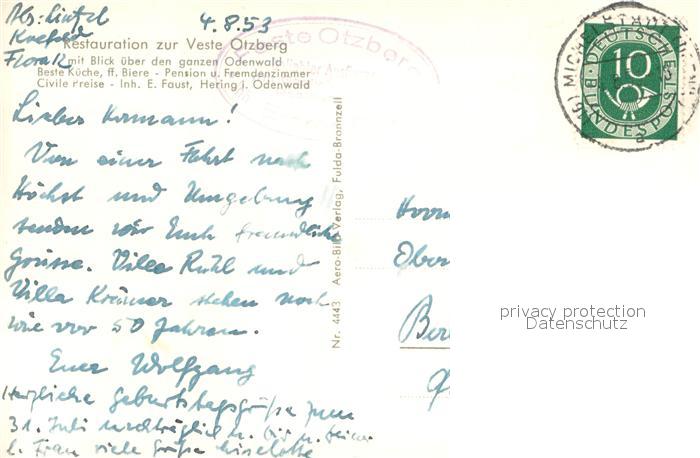 Abs: Lintzel
Krefeld
Florastr.
4.8.53
Restauration zur Veste Otzberg
mit Blick über den ganzen Odenwald
Beste Küche, ff. Biere - Pension u. Fremdenzimmer
Civile Preise - Inh. E. Faust, Hering i. Odenwald
Veste Otzberg
Lieber Hermann!
Von einer Fahrt nach
Höchst und Umgebung
senden wir Euch freundliche
Grüsse. Villa Rühl und
Villa Krämer stehen noch
wie vor 50 Jahren.
Euer Wolfgang
Herzliche Geburtstagsgrüße zum
31. Juli nachträglich u. Dir u. Deiner
l. Frau viele Grüße Liselotte
Nr. 4443 Aero-Bild-Verlag, Fulda-Bronnzell
DEUTSCHE
10
BUNDESPOST
Ober
privacy protection
Datenschutz